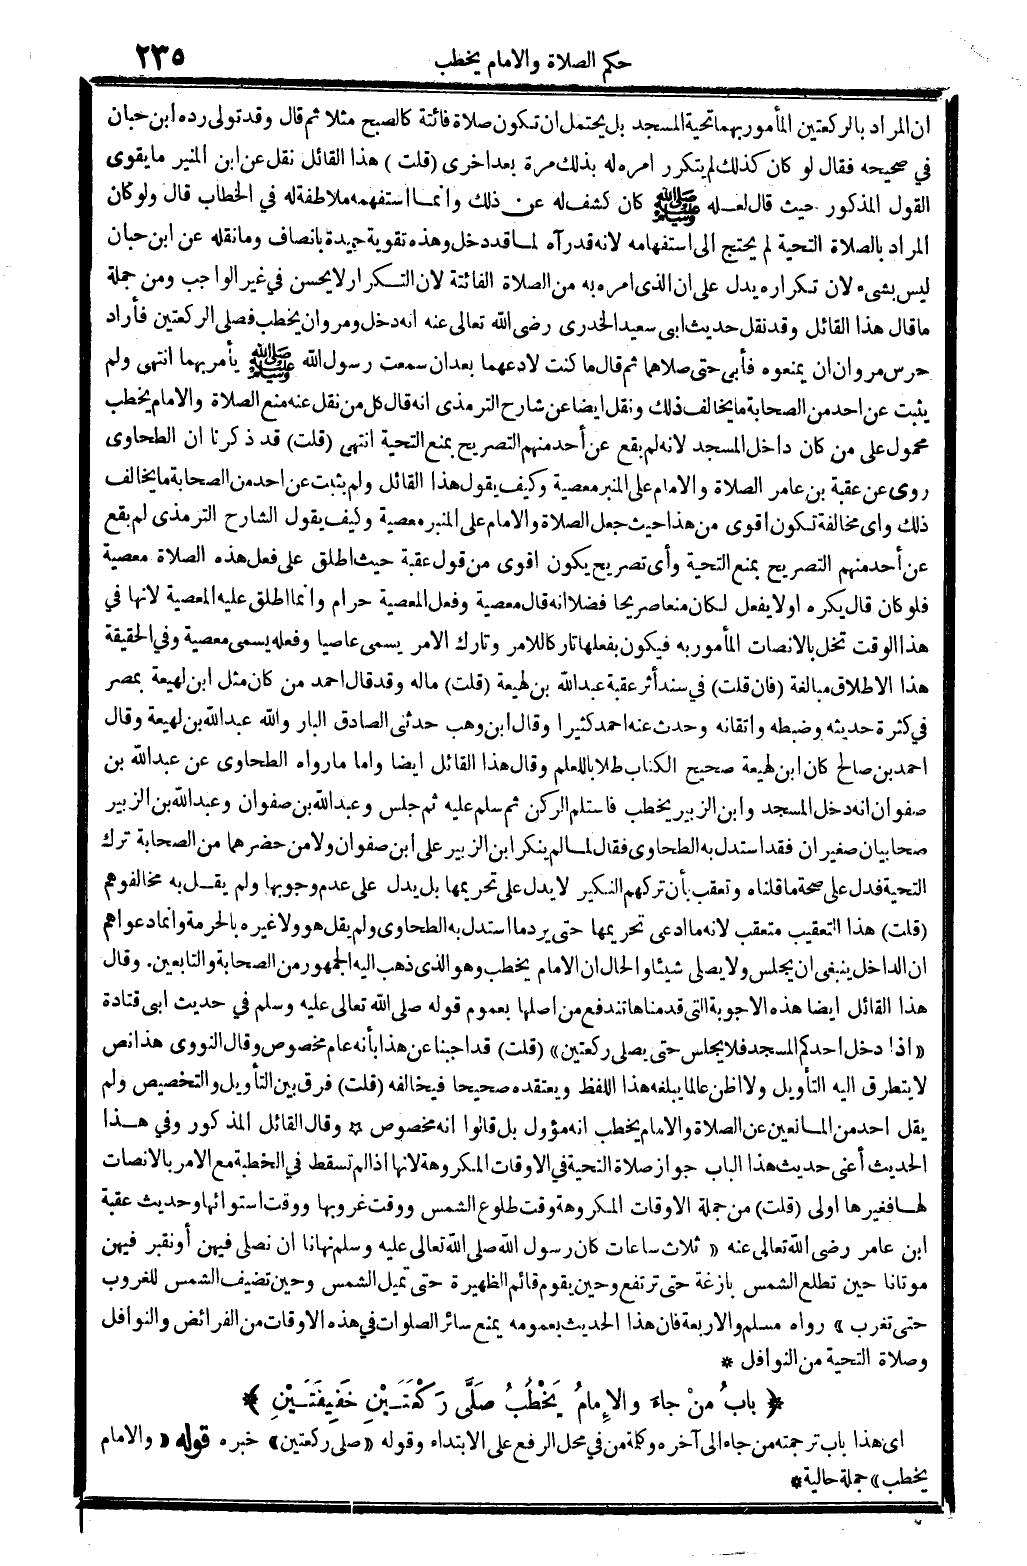 حكم الصلاة والامام يخطب ٢٣٥
ان المراد بالركعتين المأمور بهما تحية المسجد بل يحتمل ان تكون صلاة فائتة كالصبح مثلا ثم قال وقد تولى رده ابن حبان
في صحيحه فقال لو كان كذلك لم يتكرر امره له بذلك مرة بعد اخرى (قلت) هذا القائل نقل عن ابن المنير ما يقوى
القول المذكور حيث قال لعـله ﷺ كان كشف له عن ذلك وانمـا استفهمه ملاطفة له في الخطاب قال ولو كان
المراد بالصلاة التحية لم يحتج الى استفهامه لانه قدرآه لمـا قد دخل وهذه تقوية جيدة بانصاف وما نقله عن ابن حبان
ليس بشىء لان تكراره يدل على ان الذى امره به من الصلاة الفائتة لان التـكرار لا يحسن في غير الواجب ومن جملة
ما قال هذا القائل وقد نقل حديث ابى سعيد الخدرى رضى الله تعالى عنه انه دخل ومروان يخطب فصلى الركعتين فأراد
حرس مروان ان يمنعوه فأبى حتى صلاهما ثم قال ما كنت لادعهما بعد ان سمعت رسول الله ﷺ يأمر بهما انتهى ولم
يثبت عن احد من الصحابة ما يخالف ذلك ونقل ايضا عن شارح الترمذى انه قال كل من نقل عنه منع الصلاة والامام يخطب
محمول على من كان داخل المسجد لانه لم يقع عن أحد منهم التصريح بمنع التحية انتهى (قلت) قد ذكرنا ان الطحاوى
روى عن عقبة بن عامر الصلاة والامام على المنبر معصية وكيف يقول هذا القائل ولم يثبت عن احد من الصحابة ما يخالف
ذلك واى مخالفة تكون اقوى من هذا حيث جعل الصلاة والامام على المنبر معصية وكيف يقول الشارح الترمذى لم يقع
عن أحد منهم التصريح بمنع التحية وأى تصريح يكون اقوى من قول عقبة حيث اطلق على فعل هذه الصلاة معصية
فلو كان قال يكره او لا يفعل لـكان منعا صريحا فضلا انه قال معصية وفعل المعصية حرام وانما اطلق عليه المعصية لانها في
هذا الوقت تخل بالانصات المأمور به فيكون بفعلها تاركا للامر وتارك الامر يسمى عاصيا وفعله يسمى معصية وفي الحقيقة
هذا الاطلاق مبالغة (فان قلت) في سند أثر عقبة عبد الله بن لهيعة (قلت) ماله وقد قال احمد من كان مثل ابن لهيعة بمصر
في كثرة حديثه وضبطه واتقانه وحدث عنه احمد كثيرا وقال ابن وهب حدثنى الصادق البار والله عبد الله بن لهيعة وقال
احمد بن صالح كان ابن لهيعة صحيح الكتاب طلابا للعلم وقال هذا القائل ايضا واما ما رواه الطحاوى عن عبد الله بن
صفوان انه دخل المسجد وابن الزبير يخطب فاستلم الركن ثم سلم عليه ثم جلس وعبد الله بن صفوان وعبد الله بن الزبير
صحابيان صغيران فقد استدل به الطحاوى فقال لمـا لم ينكر ابن الزبير على ابن صفوان ولا من حضرهما من الصحابة ترك
التحية فدل على صحة ما قلناه وتعقب بأن تركهم النـكير لا يدل على تحريمها بل يدل على عدم وجوبها ولم يقـل به مخالفوهم
(قلت) هذا التعقيب متعقب لانه ما ادعى تحريمها حتى يرد ما استدل به الطحاوى ولم يقل هو ولا غيره بالحرمة وانما دعواهم
ان الداخل ينبغى ان يجلس ولا يصلى شيئا والحال ان الامام يخطب وهو الذى ذهب اليه الجمهور من الصحابة والتابعين. وقال
هذا القائل ايضا هذه الاجوبة التى قدمناها تندفع من اصلها بعموم قوله صلى الله تعالى عليه وسلم في حديث ابى قتادة
« اذا دخل احدكم المسجد فلا يجلس حتى يصلى ركعتين» (قلت) قد اجبنا عن هذا بأنه عام مخصوص وقال النووى هذا نص
لا يتطرق اليه التأويل ولا اظن عالما يبلغه هذا اللفظ ويعتقده صحيحا فيخالفه (قلت) فرق بين التأويل والتخصيص ولم
يقل احد من المـانعين عن الصلاة والامام يخطب انه مؤول بل قالوا انه مخصوص * وقال القائل المذكور وفي هـذا
الحديث أعنى حديث هذا الباب جواز صلاة التحية في الاوقات المكروهة لانها اذا لم تسقط في الخطبة مع الامر بالانصات
لهـا فغيرها اولى (قلت) من جملة الاوقات المكروهة وقت طلوع الشمس ووقت غروبها ووقت استوائها وحديث عقبة
ابن عامر رضى الله تعالى عنه « ثلاث ساعات كان رسول الله صلى الله تعالى عليه وسلم نهانا ان نصلى فيهن أو نقبر فيهن
موتانا حين تطلع الشمس بازغة حتى ترتفع وحين يقوم قائم الظهيرة حتى تميل الشمس وحين تضيف الشمس للغروب
حتى تغرب » رواه مسلم والاربعة فان هذا الحديث بعمومه يمنع سائر الصلوات في هذه الاوقات من الفرائض والنوافل
وصلاة التحية من النوافل *
﴿ بابُ مَنْ جاءَ والإِمامُ يَخْطُبُ صَلَّى رَكْعَتَـيْنِ خَفِيفَتَـيْنِ ﴾
اى هذا باب ترجمته من جاء الى آخره وكلمة من في محل الرفع على الابتداء وقوله «صلى ركعتين» خبره قوله « والامام
يخطب» جملة حالية *